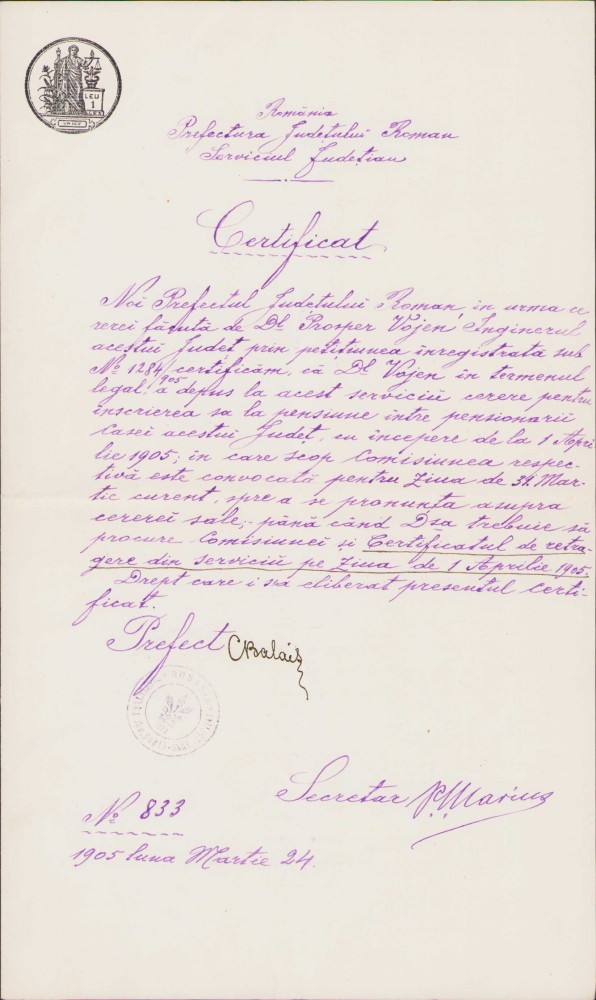 LEU
1
România
Prefectura Județului Roman
Serviciul Județian
Certificat
Noi Prefectul Județului Roman, in urma ce
rerei făcută de Dl. Prosper Vojen, Inginerul
acestui Județ prin petițiunea înregistrată sub
No 1284/905 certificăm, că Dl. Vojen în termenul
legal, a depus la acest serviciu cerere pentru
înscrierea sa la pensiune între pensionarii
Casei acestui Județ, cu începere de la 1 Apri
lie 1905; in care scop Comisiunea respec-
tivă este convocată pentru Ziua de 31. Mar-
tie curent, spre a se pronunța asupra
cererei sale;- până când Dsa trebuie să
procure Comisiunei și Certificatul de retra-
gere din serviciu pe Ziua de 1 Aprilie 1905.
Drept care i s'a eliberat presentul certi-
ficat.
Prefect CBalais
Secretar P. Marius
No 833
1905 luna Martie 24.